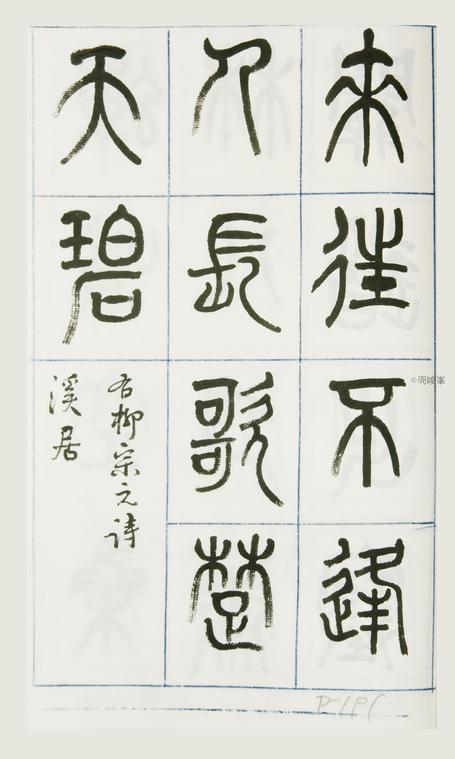 来往不逢
人長歌楚
天碧
右柳宗元诗
溪居
©周峻峯